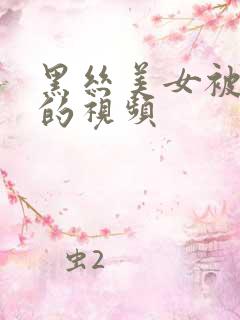 黑丝美女被
的視頻
虫2